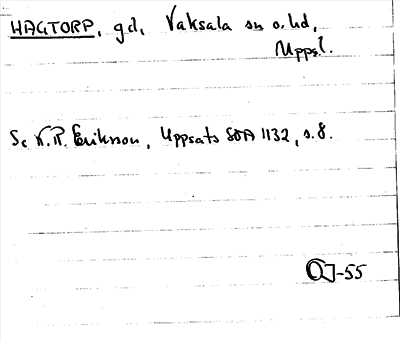 HAGTORP, gd, Vaksala sn o. hd,
Uppsl.
Se K. R. Eriksson, Uppsats SOA 1132, s. 8.
OJ-55